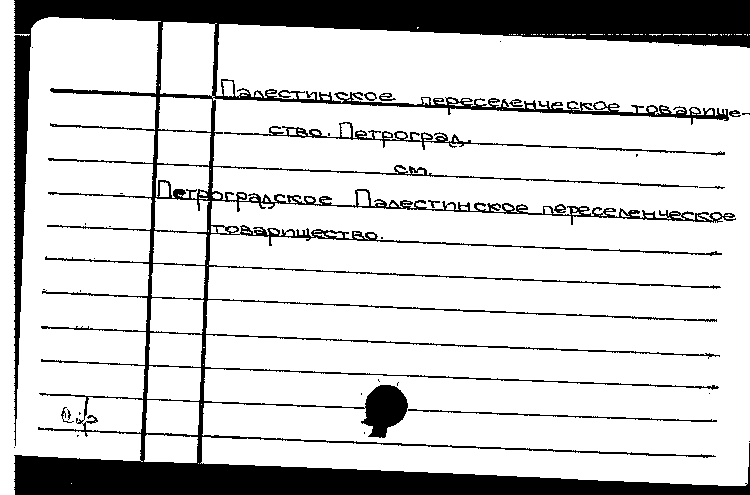 Палестинское переселенческое товарище-
ство. Петроград.
см.
Петроградское Палестинское переселенческое
товарищество.